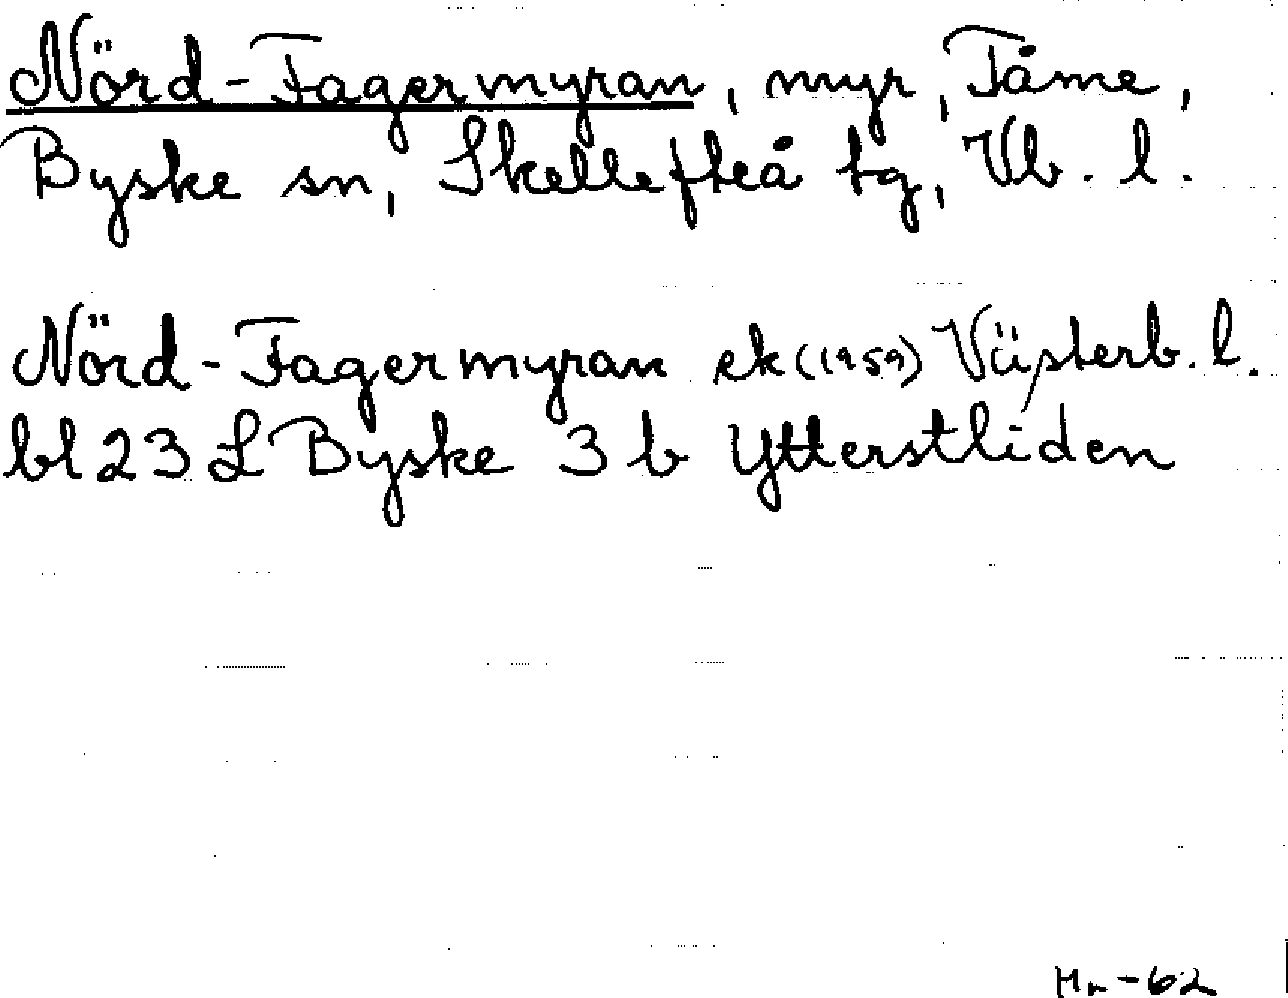 Nörd-Fagermyran, myr, Tåme,
Byske sn, Skellefteå tg, Vb. l.
Nörd-Fagermyran ek (1959) Västerb. l.
bl 23 L Byske 3 b Ytterstliden
Hr-62